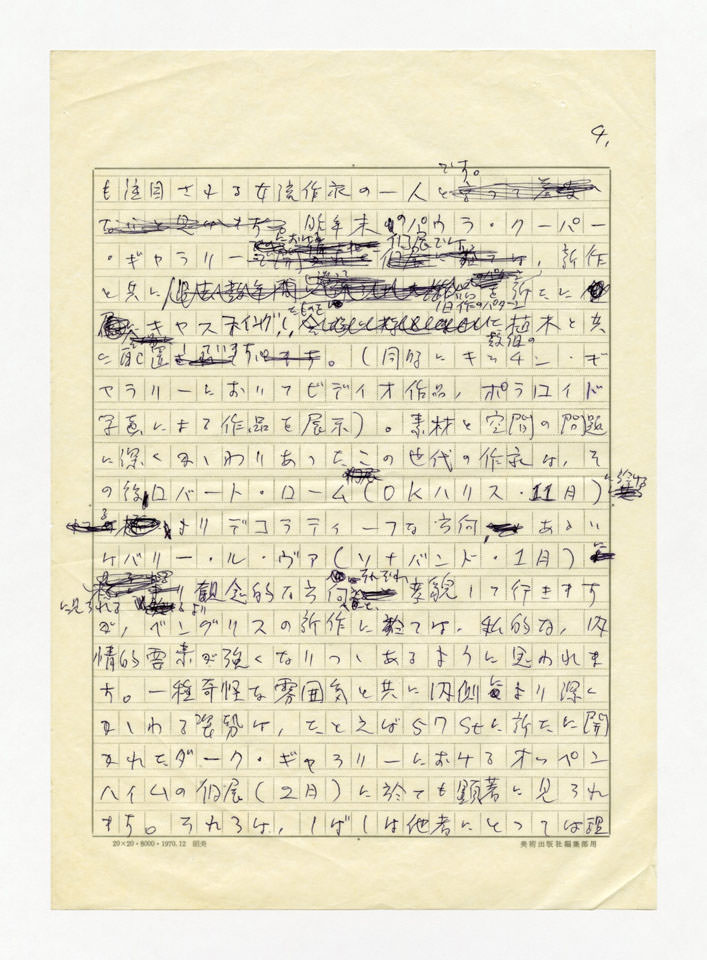 4.
です。
も注目される女流作家の一人と
昨年末のパウラ・クーパー
・ギャラリーにおける個展では、新作
と共に
旧作のパターンを新たに
キャスティングしたものを植木と共
に配置。(同時にキッチン・ギ
ャラリーにおいてビディオ作品,ポラロイド
写真による作品を展示)。素材と空間の問題
に深くかゝわりあったこの世代の作家は、そ
の後,ロバート・ローム(OKハリス・11月)に於ける
よりデコラティーフな方向, あるい
はバリー・ル・ヴァ(ソナバンド・1月)
に見られるより観念的な方向と、それぞれ変貌して行きます
が, ベングリスの新作に於ては、私的な,内
情的要素が強くなりつゝあるように思われま
す。一種奇怪な雰囲気と共に内側より深く
かゝわる姿勢は,たとえば57Stに新たに開
かれたダーク・ギャラリーにおけるオッペン
ハイムの個展(2月)に於ても顕著に見られ
ます。それらは,しばしば他者にとっては理
20×20・8000・1970.12
美術出版社編集部用